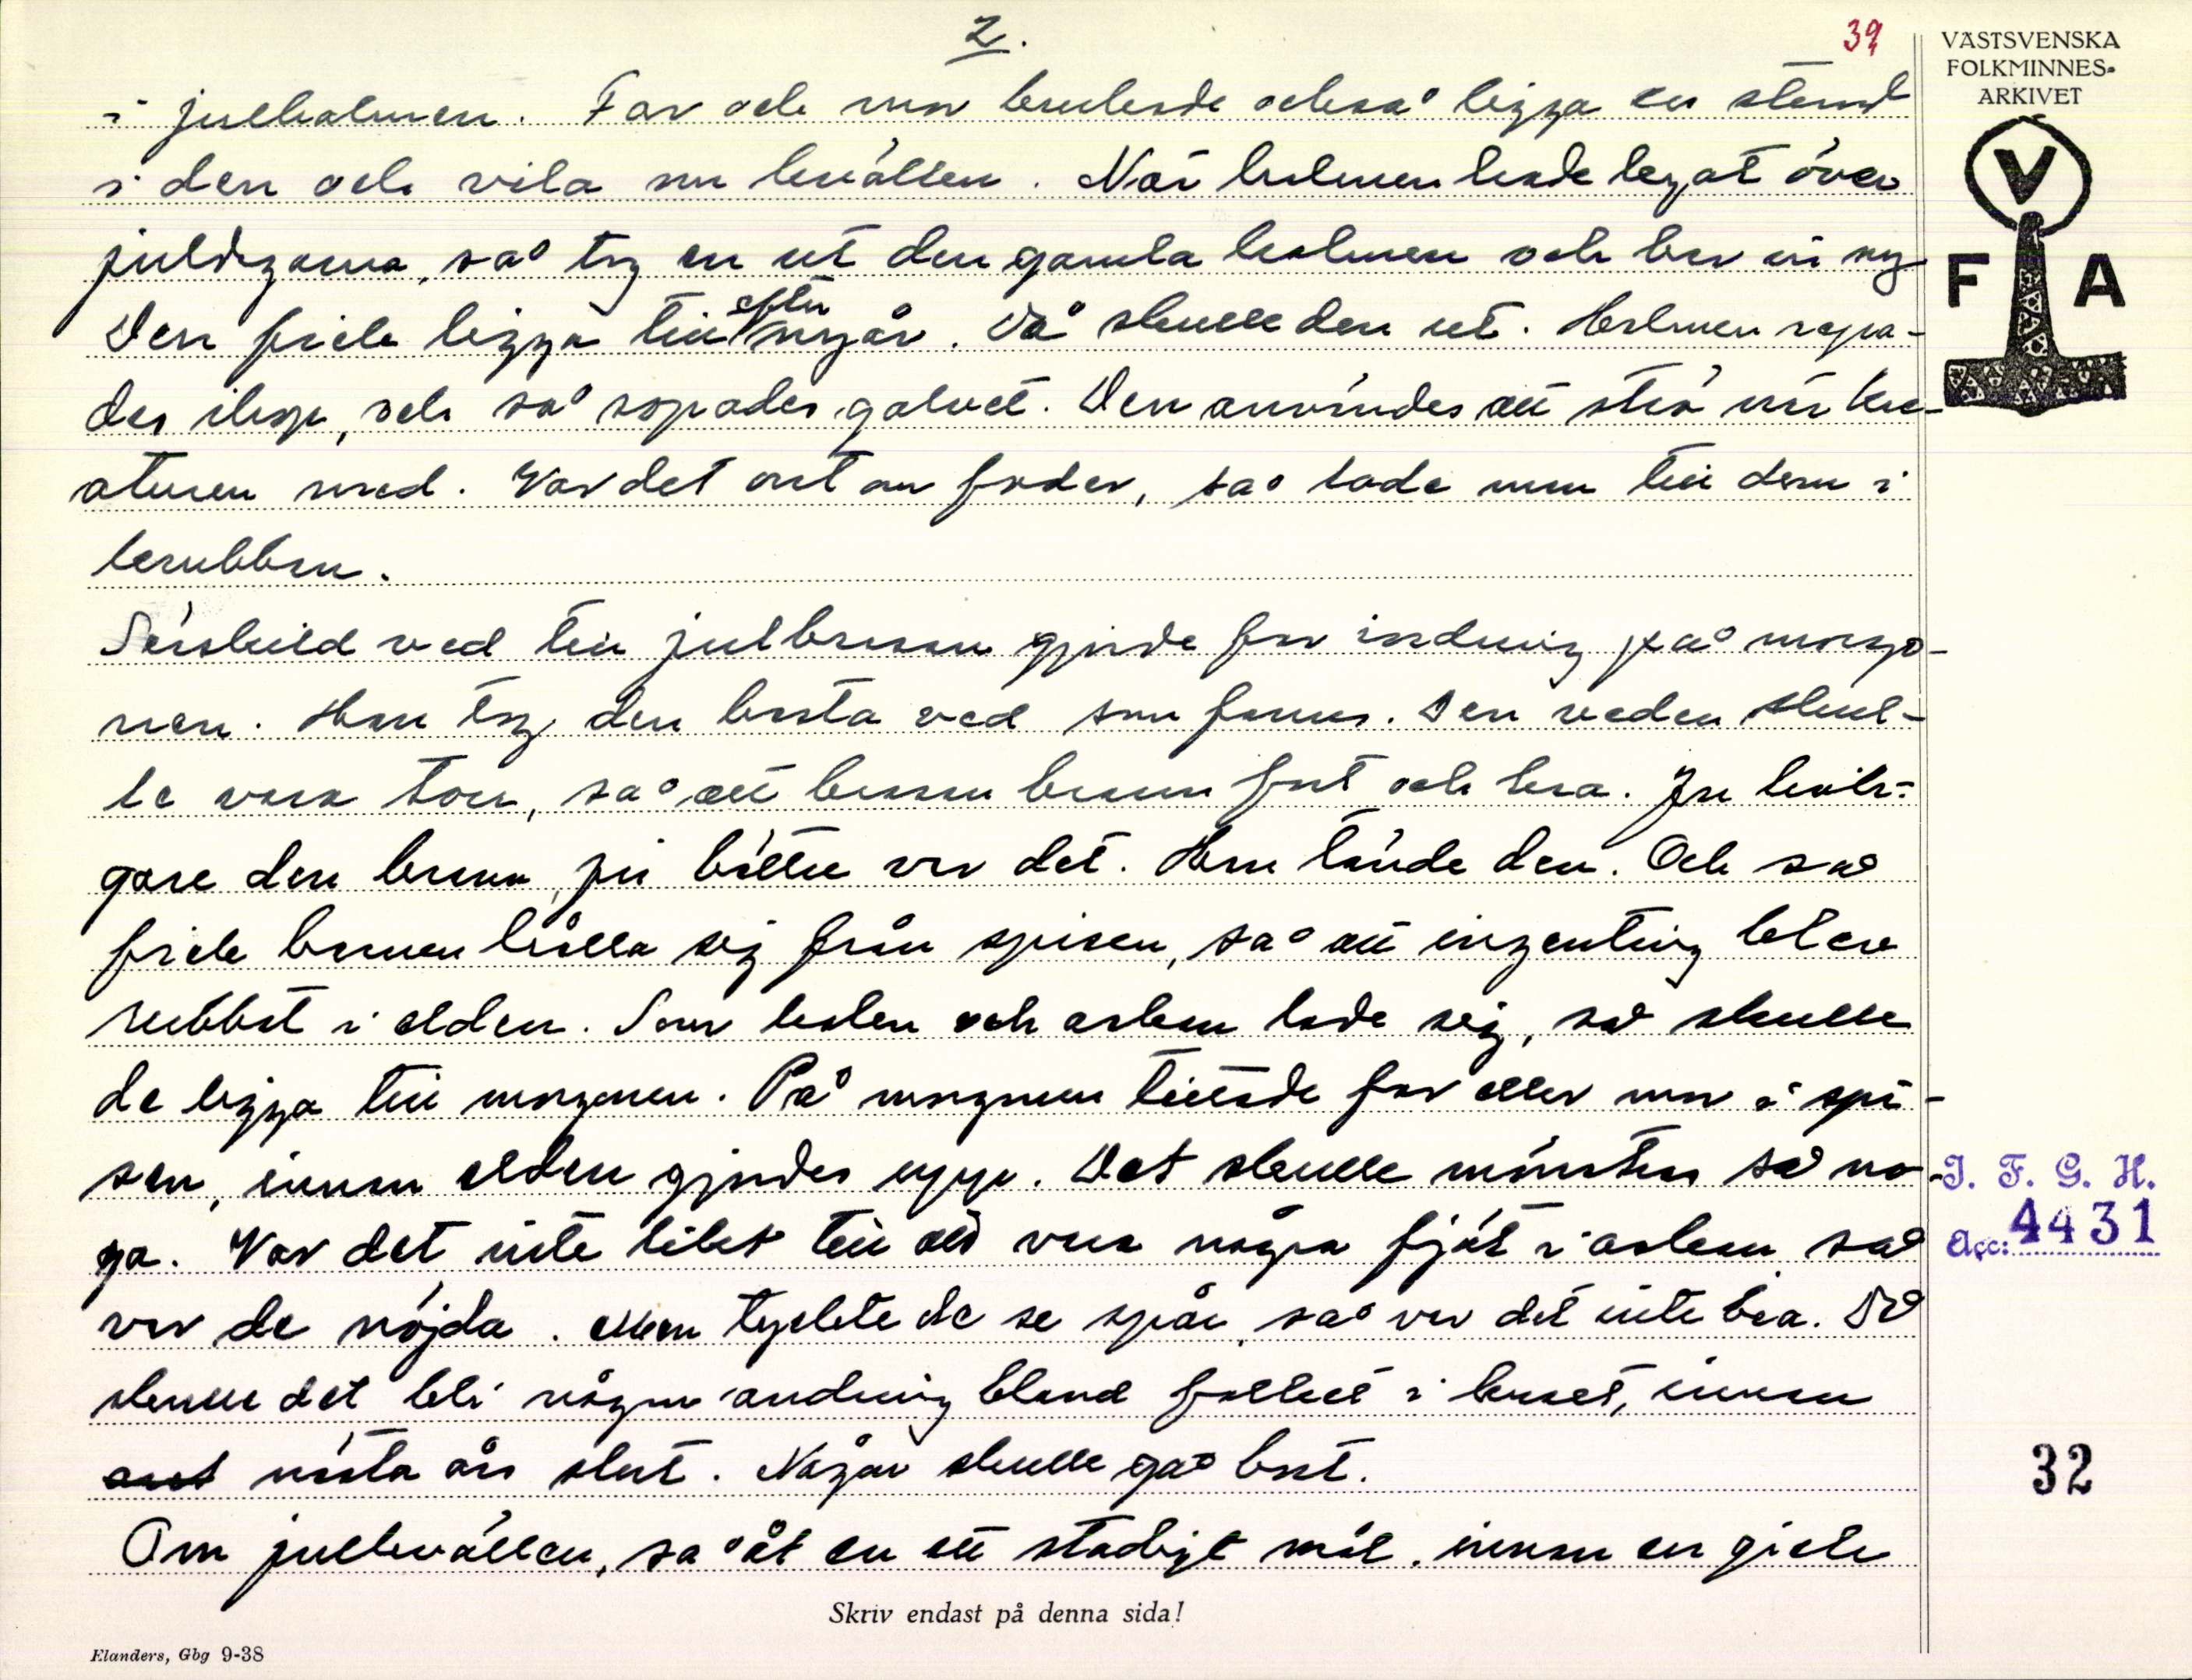 2.
39
VÄSTSVENSKA
FOLKMINNES-
ARKIVET
V
F A
i julhalmen. Far och mor brukade också ligga en stund
i den och vila om kvällen. När halmen hade legat över
juldagarna, så tog en ut den gamla halmen och bar in ny
Den fick ligga till efter nyår. Då skulle den ut. Halmen sopa-
des ihop, och så sopades golvet. Den användes att strö när kre-
aturen med. Var det ont om foder, så lade man till dem i
krubban.
Särskild ved till julbrasan gjorde far iordning på morgo-
nen. Han tog den bästa ved som fanns. Den veden skul-
le vara torr, så att brasan brann fort och bra. Ju hasti-
gare den brann, ju bättre var det. Han tände den. Och så
fick barnen hålla sig från spisen, så att ingenting blev
rubbat i elden. Som kolen och askan lade sig, så skulle
de ligga till morgonen. På morgonen tittade far eller mor i spi-
sen, innan elden gjordes upp. Det skulle mönstras så no-
ga. Var det inte likt till att vara några fjät i askan så
var de nöjda. Men tyckte de se spår, så var det inte bra. Då
skulle det bli någon ändring bland folket i huset, innan
nästa års slut. Någon skulle gå bort.
Om julkvällen, så åt en ett stadigt mål, innan en gick
I. F. G. H.
Acc: 4431
32
Skriv endast på denna sida!
Elanders, Gbg 9-38